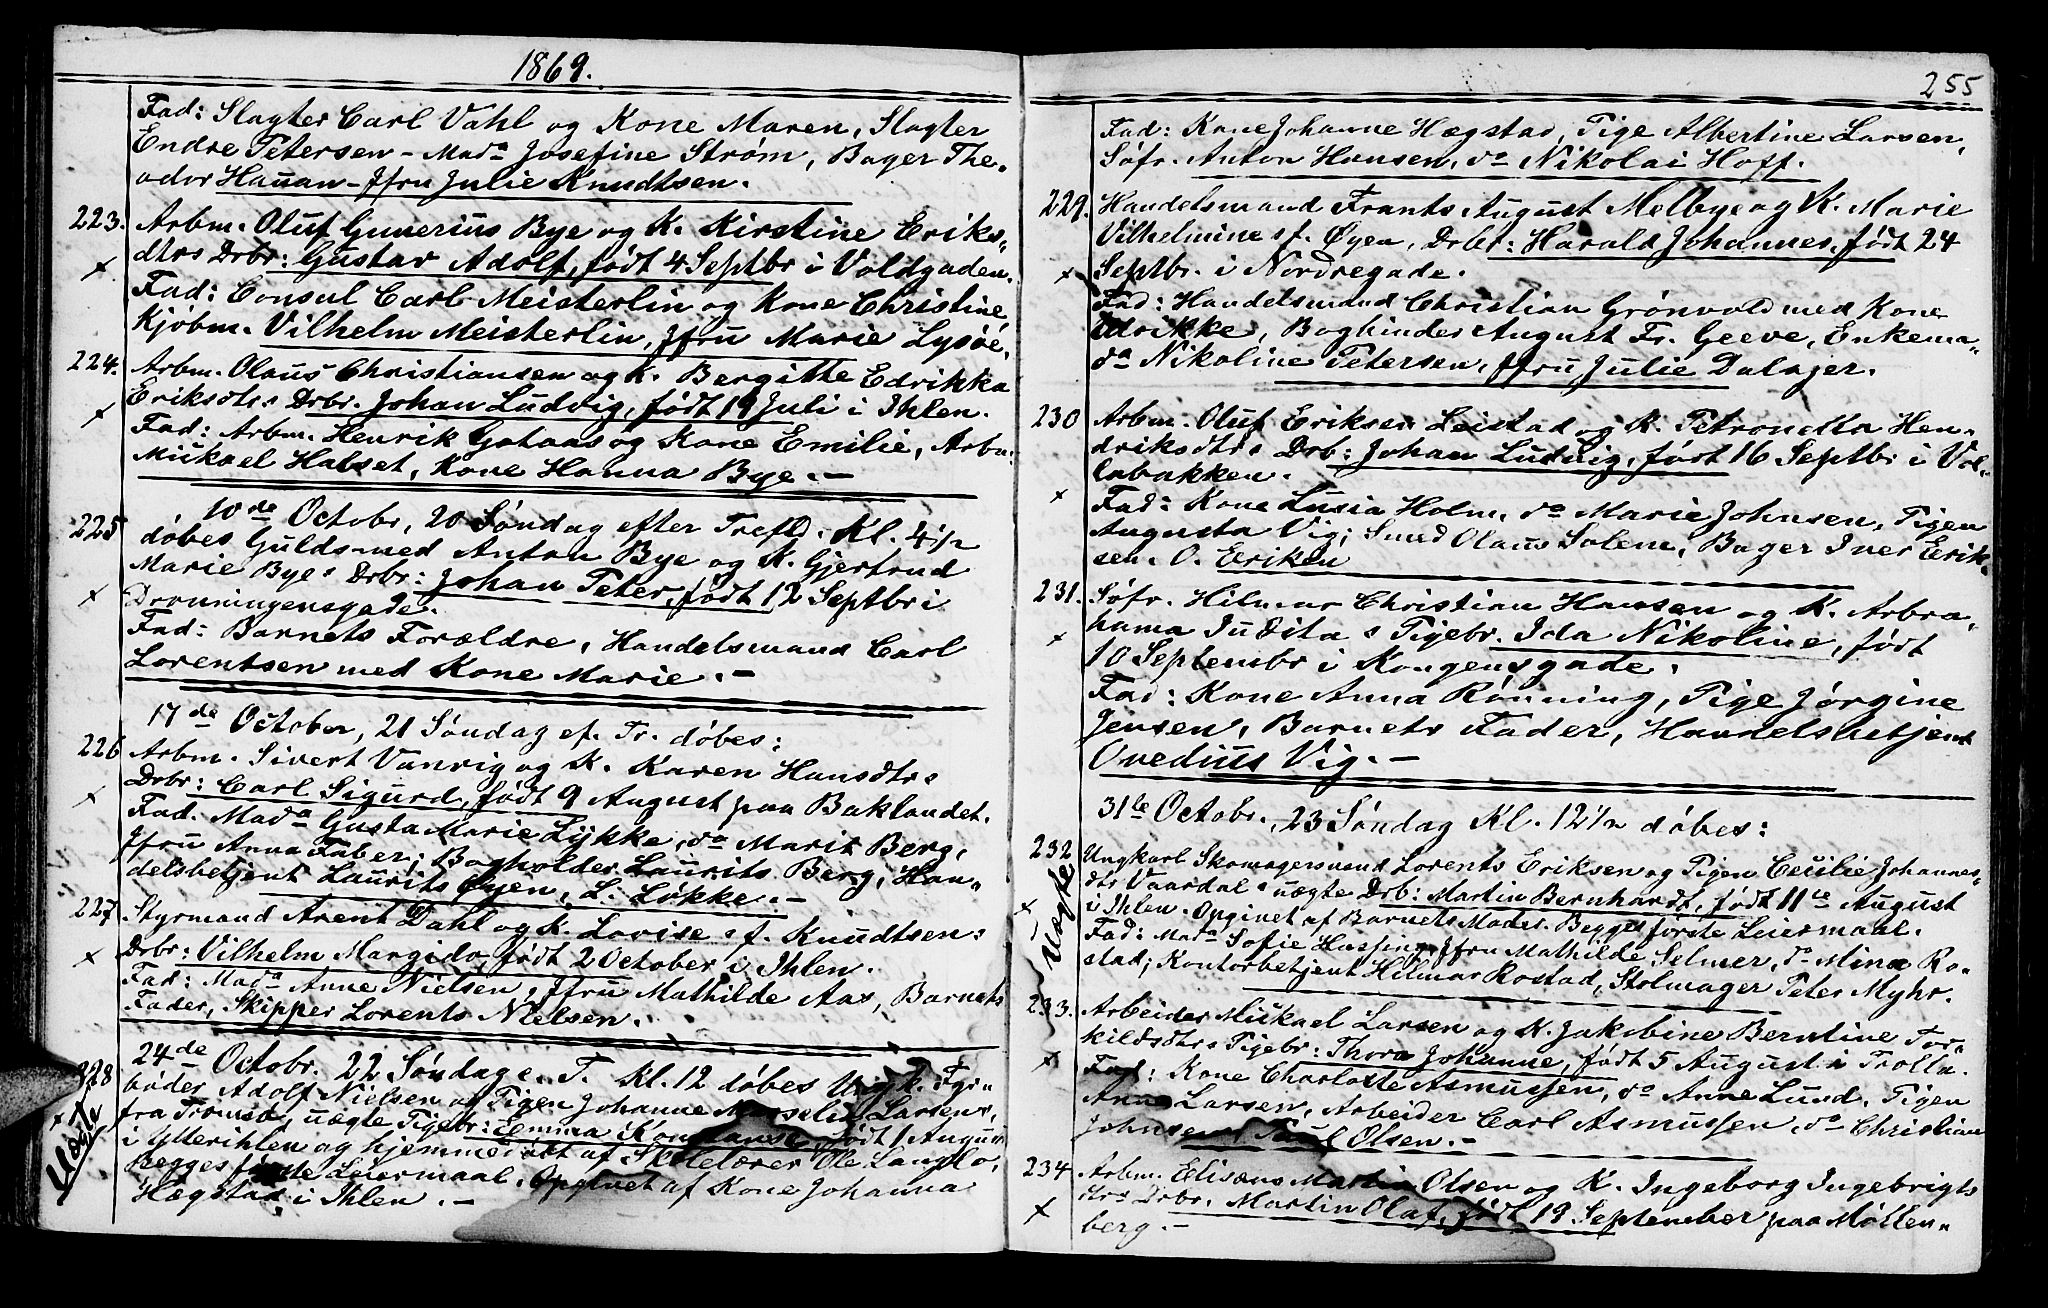 1869.
Fad: Slagter Carl Vahl og Kone Maren, Slagter
Endre Petersen - Mad<sup>a</sup> Josefine Strøm, Bager The-
odor Hauan - Jfru Julie Knudtsen.
223. Arbm. Oluf Gunerius Bye og K. Kirstine Eriks-
dtrs Drbr: Gustav Adolf, født 4 Septbr i Voldgaden.
x
Fad: Consul Carl Meisterlin og Kone Christine
Kjøbm. Vilhelm Meisterlin, Jfru Marie Lysøe.
224. Arbm. Olaus Christiansen og K. Bergitte Edrikka
Eriksdtrs Drbr. Johan Ludvig, født 19 Juli i Ihlen.
x
Fad: Arbm. Henrik Gataas og Kone Emilie, Arbm.
Mikael Halset, Kone Hanna Bye. -
10de Octobr, 20 Søndag efter Trefld. Kl. 4½
225 døbes Guldsmed Anton Bye og K. Gjertrud
Marie Byes Drbr: Johan Peter, født 12 Septbr i
x Dronningensgade.
Fad: Barnets Forældre, Handelsmand Carl
Lorentsen med Kone Marie. -
17de October, 21 Søndag ef. Tr. døbes:
226 Arbm. Sivert Vanvig og K. Karen Hansdtrs
Drbr: Carl Sigurd, født 9 August paa Baklandet.
x
Fad. Mad<sup>a</sup> Gusta Marie Lykke, do Marit Berg,
Jfru Anna Faber; Bogholder Laurits Berg, Han-
delsbetjent Laurits Øyen, L. Løkke. -
227 Styrmand Arent Dahl og K. Lovise f. Knudtsens
Drbr: Vilhelm Margido, født 2 October i Ihlen.
x
Fad: Mad<sup>a</sup> Anne Nielsen, Jfru Mathilde Aas, Barnets
Fader, Skipper Lorents Nielsen.
24de Octobr. 22 Søndag e. T. Kl. 12 døbes Ungk.
228 Adolf Nielsen og Pigen Johanne Larsens,
x fra uægte Pigebr: Emma født 1 August
Uægte
i Ytterihlen og hjemmedøbt af Skolelærer Ole Langlo,
Begges første Leiermaal. Opgivet af Kone Johanna
Hægstad, i Ihlen. -
255
Fad: Kone Johanne Hægstad, Pige Albertine Larsen,
Søfr. Anton Hansen, do Nikolai Hoff.
229. Handelsmand Frants August Melbye og K. Marie
Vilhelmine f. Øyen, Drbr: Harald Johannes, født 24
x Septbr. i Nordregade.
Fad: Handelsmand Christian Grønvold med Kone
Edrikke, Bogbinder August Fr. Geeve, Enkema-
da Nikoline Petersen, Jfru Julie Dalager.
230 Arbm. Oluf Eriksen Leistad og K. Petronella Hen-
driksdtrs Drbr: Johan Ludvig, født 16 Septbr i Vol-
labakken.
x
Fad: Kone Lusia Holm, do Marie Johnsen, Pigen
Augusta Vig; Smed Olaus Solem, Bager Iver Erik-
sen. O. Eriken
231. Søfr. Hilmar Christian Hansen og K. Arbra-
hama Juditas Pigebr. Ida Nikoline, født
x
10 Septembr i Kongensgade.
Fad: Kone Anna Rønning, Pige Jørgine
Jensen, Barnets Fader, Handelsbetjent
Ovedius Vig. -
31te Octobr. 23 Søndag Kl. 12½ døbes:
232 Ungkarl Skomagersvend Lorents Eriksen og Pigen Cecilie Johannes-
dtr Vaardals uægte Drbr: Martin Bernhardt, født 11te August
x Uægte
i Ihlen. Opgivet af Barnets Moder. Begges første Leiermaal.
Fad: Mad<sup>a</sup> Sofie Hassing, Jfru Mathilde Selmer, do Mina Ro-
stad; Kontorbetjent Hilmar Rostad, Stolmager Peter Myhr.
233. Arbeider Mikael Larsen og K. Jakobine Berntine Tor-
kildsdtrs Pigebr: Thora Johanne, født 5 August i Trolla.
x
Fad: Kone Charlotte Asmussen, do Anne Lund, Pigen
Anne Larsen, Arbeider Carl Asmussen do Christian
Johnsen, Poul Olsen. -
234 Arbm. Elisæus Martin Olsen og K. Ingeborg Ingebrigts
dtrs Drbr. Martin Olaf, født 19 September paa Møllen-
x
berg. -